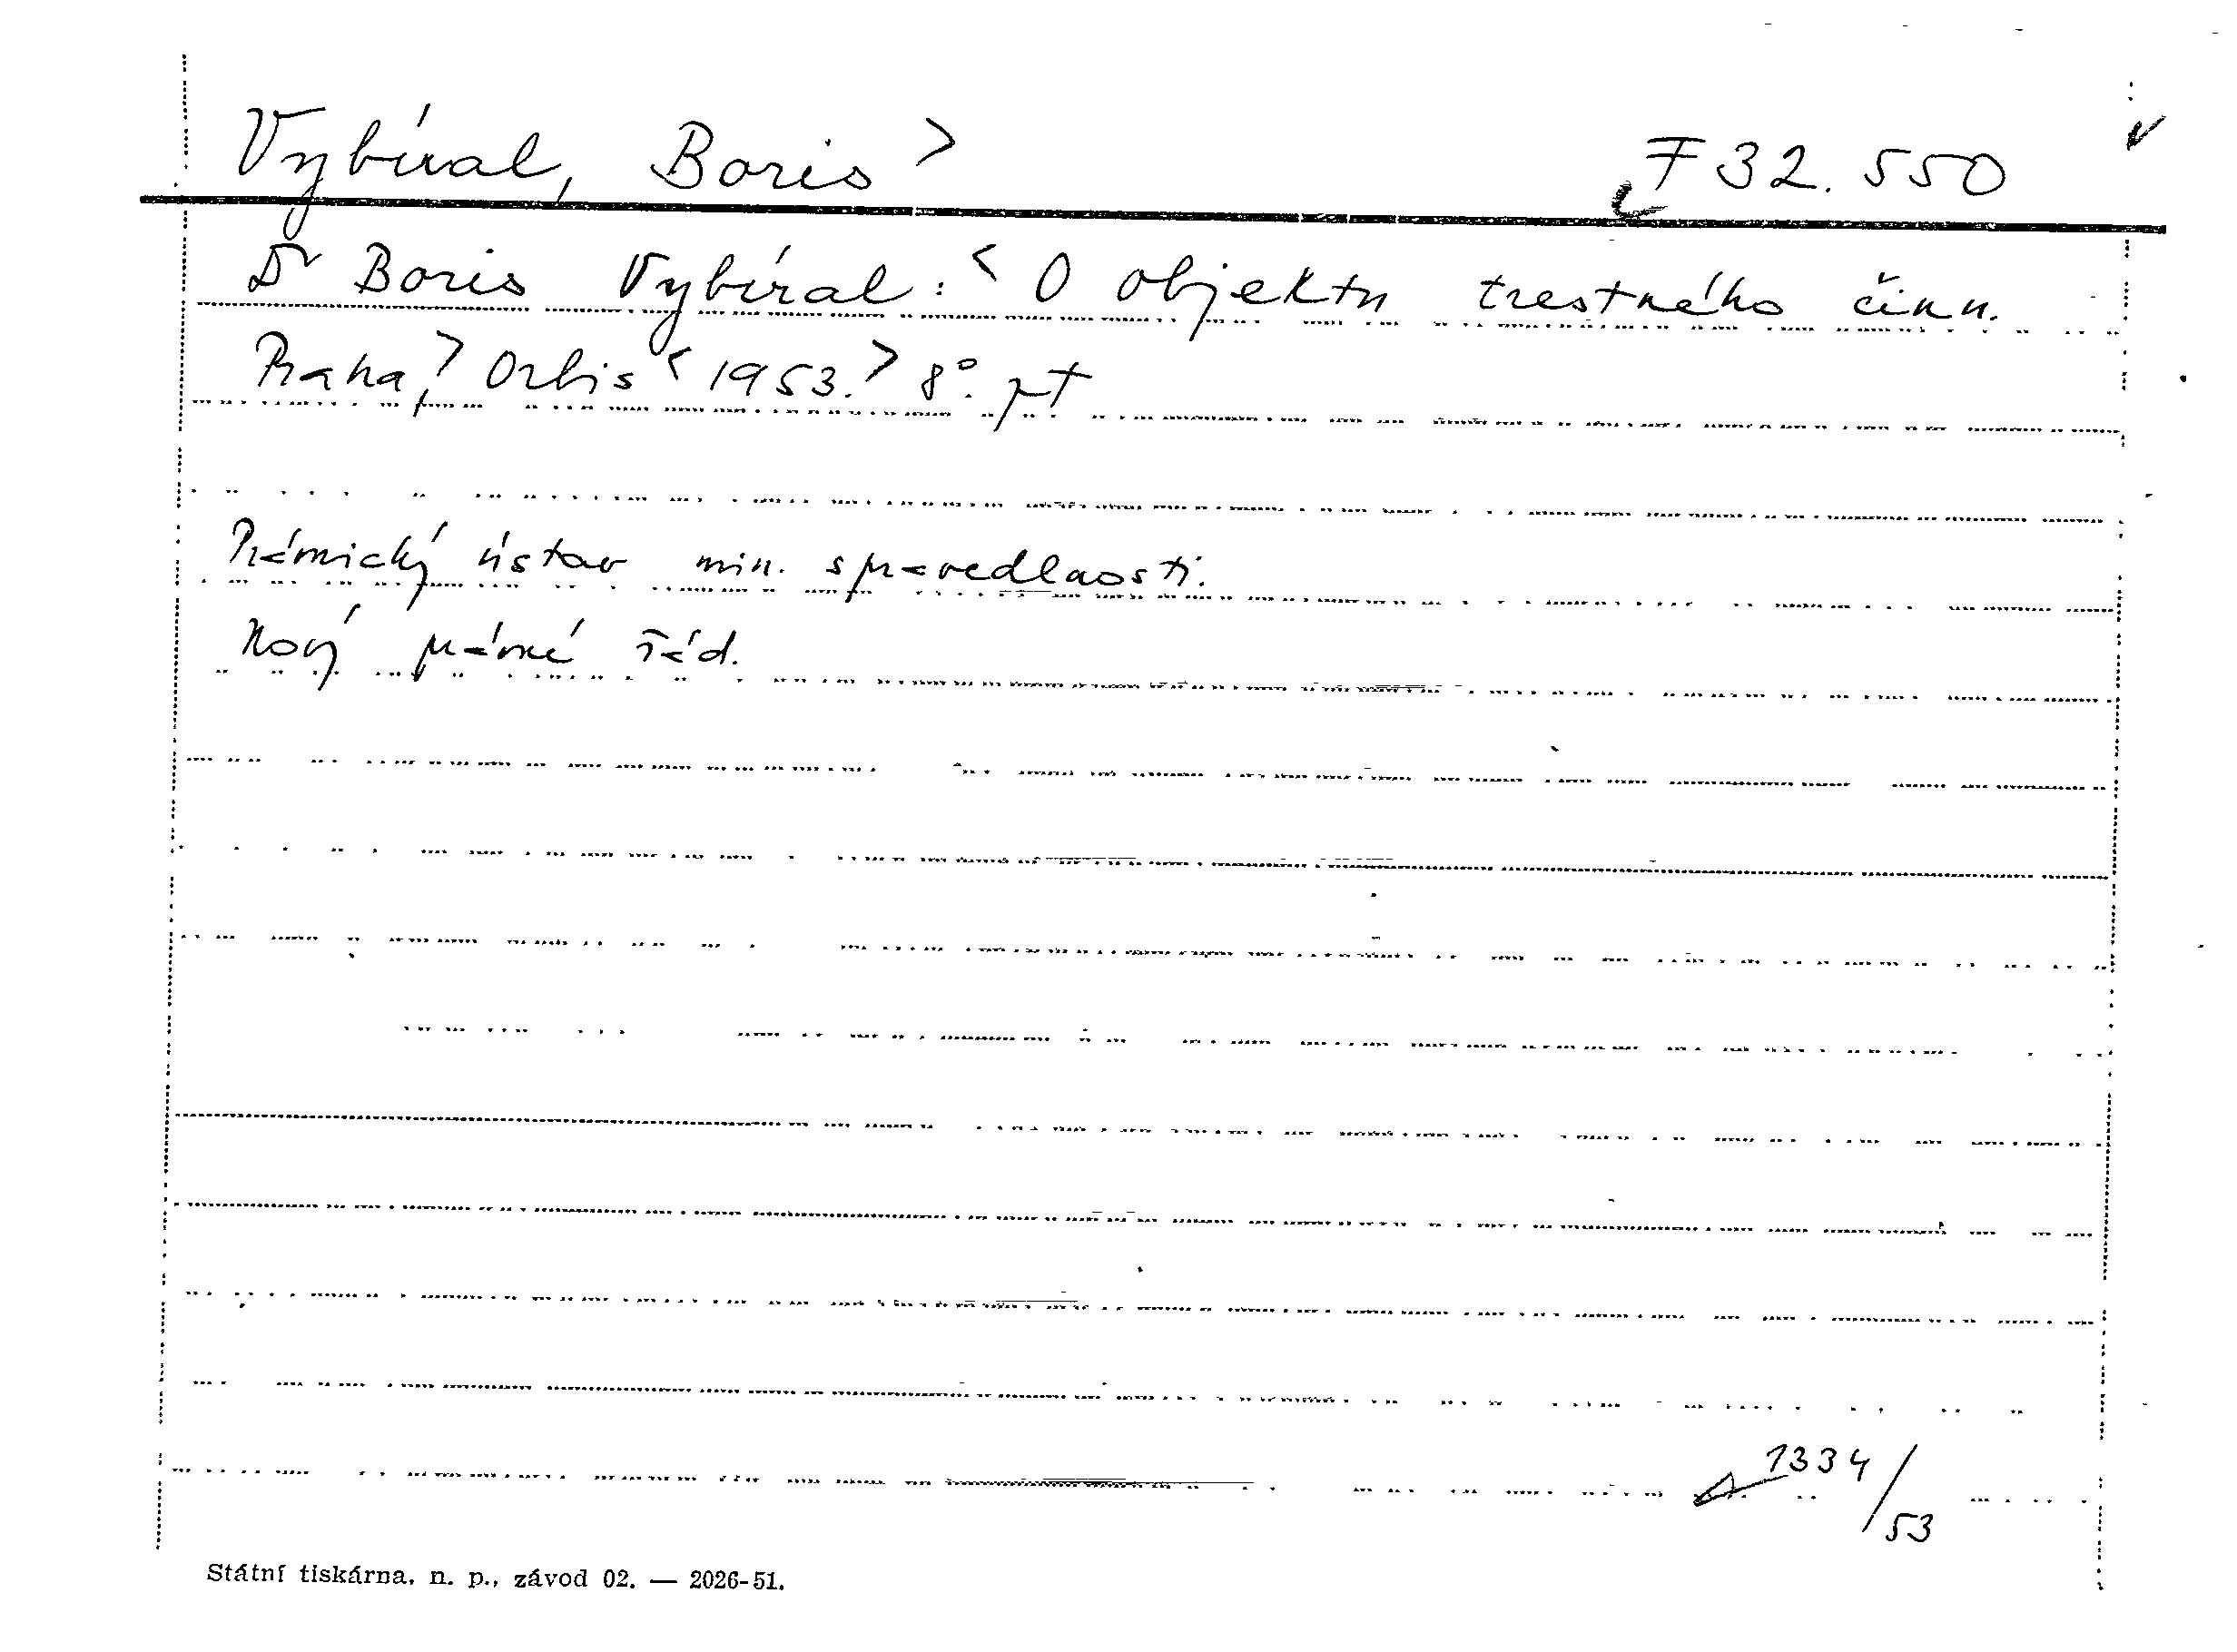 Vybíral, Boris > F 32.550
Dr Boris Vybíral: < O objektu trestného činu.
Praha, > Orbis < 1953. > 8°.
Právnický ústav min. spravedlnosti.
Nový právní řád.
1334/53
Státní tiskárna, n. p., závod 02. — 2026-51.